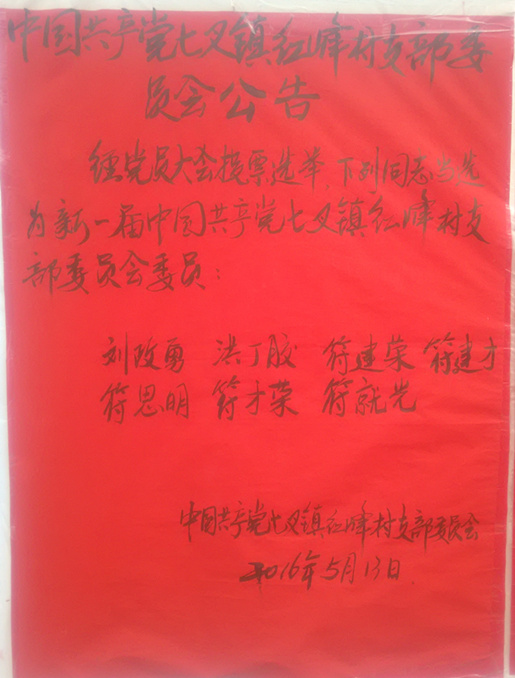 中国共产党七叉镇红峰村支部委
员会公告
经党员大会投票选举,下列同志当选
为新一届中国共产党七叉镇红峰村支
部委员会委员:
刘政勇 洪丁胶 符建荣 符建才
符恩明 符才荣 符就光
中国共产党七叉镇红峰村支部委员会
2016年5月13日